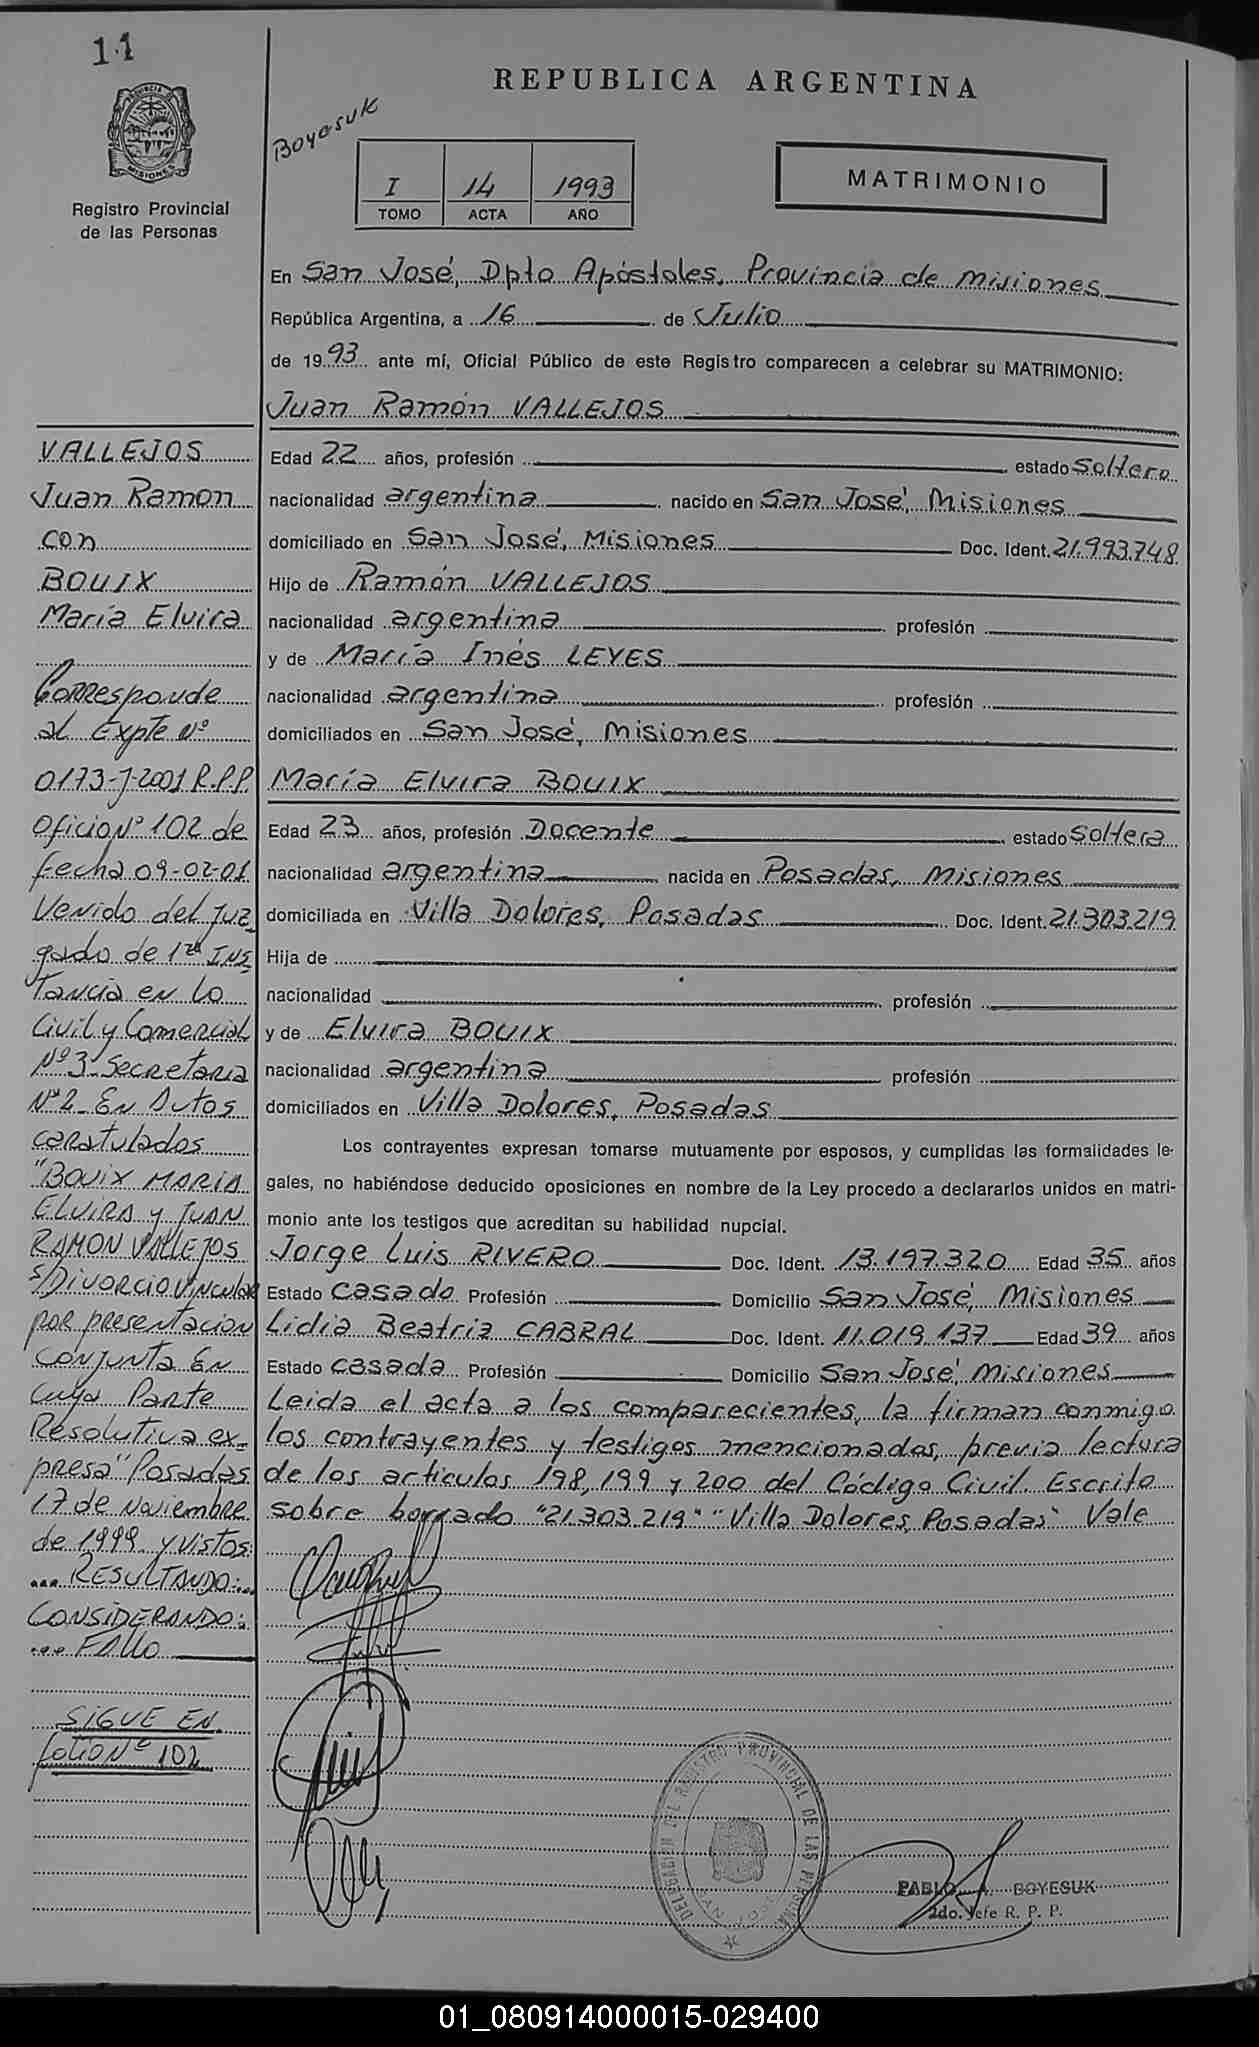 11
REPUBLICA ARGENTINA
Boyesuk
PROVINCIA DE
MISIONES
Registro Provincial
de las Personas
I 14 1993
TOMO ACTA AÑO
MATRIMONIO
En San José, Dpto Apóstoles, Provincia de Misiones
República Argentina, a 16 de Julio
de 1993 ante mí, Oficial Público de este Registro comparecen a celebrar su MATRIMONIO:
Juan Ramón VALLEJOS
Edad 22 años, profesión estado soltero
nacionalidad argentina nacido en San José, Misiones
domiciliado en San José, Misiones Doc. Ident. 21.993.748
Hijo de Ramón VALLEJOS
nacionalidad argentina profesión
y de María Inés LEYES
nacionalidad argentina profesión
domiciliados en San José, Misiones
María Elvira BOUIX
Edad 23 años, profesión Docente estado soltera
nacionalidad argentina nacida en Posadas, Misiones
domiciliada en Villa Dolores, Posadas Doc. Ident. 21.303.219
Hija de
nacionalidad profesión
y de Elvira BOUIX
nacionalidad argentina profesión
domiciliados en Villa Dolores, Posadas
Los contrayentes expresan tomarse mutuamente por esposos, y cumplidas las formalidades le-
gales, no habiéndose deducido oposiciones en nombre de la Ley procedo a declararlos unidos en matri-
monio ante los testigos que acreditan su habilidad nupcial.
Jorge Luis RIVERO Doc. Ident. 13.197.320 Edad 35 años
Estado casado Profesión Domicilio San José, Misiones
Lidia Beatriz CABRAL Doc. Ident. 11.019.137 Edad 39 años
Estado casada Profesión Domicilio San José, Misiones
Leida el acta a los comparecientes, la firman conmigo
los contrayentes y testigos mencionados, previa lectura
de los articulos 198, 199 y 200 del Código Civil. Escrito
sobre borrado "21.303.219" "Villa Dolores, Posadas" Vale
VALLEJOS
Juan Ramon
con
BOUIX
María Elvira
Corresponde
al Expte Nº
0173-J-2001 R.P.P.
Oficio Nº 102 de
fecha 09-02-01
Venido del Juz
gado de 1ra INS
Tancia en lo
Civil y Comercial
Nº 3 Secretaria
Nº 2 - En Autos
caratulados
"BOUIX MARIA
ELVIRA y JUAN
RAMON VALLEJOS
S/DIVORCIO VINCULAR
por presentacion
CONJUNTA EN
cuya Parte
Resolutiva ex-
presa" Posadas
17 de Noviembre
de 1999. y VISTOS:
... RESULTANDO:...
CONSIDERANDO:
... FALLO
SIGUE EN
folio Nº 102
DELEGACION DEL REGISTRO PROVINCIAL DE LAS PERSONAS
SAN JOSE
PABLO A. BOYESUK
2do. Jefe R. P. P.
01_080914000015-029400